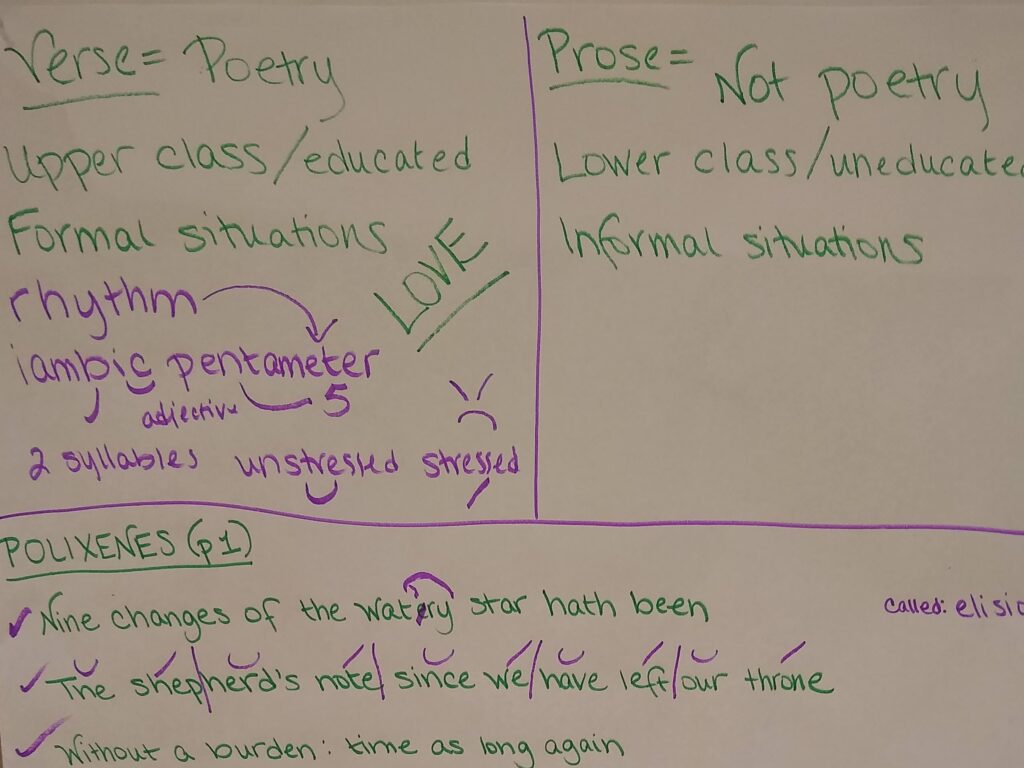 Verse = Poetry
Upper class/educated
Formal situations
LOVE
rhythm
iambic pentameter
adjective 5
2 syllables unstressed stressed
Prose = Not poetry
Lower class/uneducate
Informal situations
POLIXENES (p1)
Nine changes of the watery star hath been
called: elisio
The shepherd's note since we have left our throne
Without a burden: time as long again